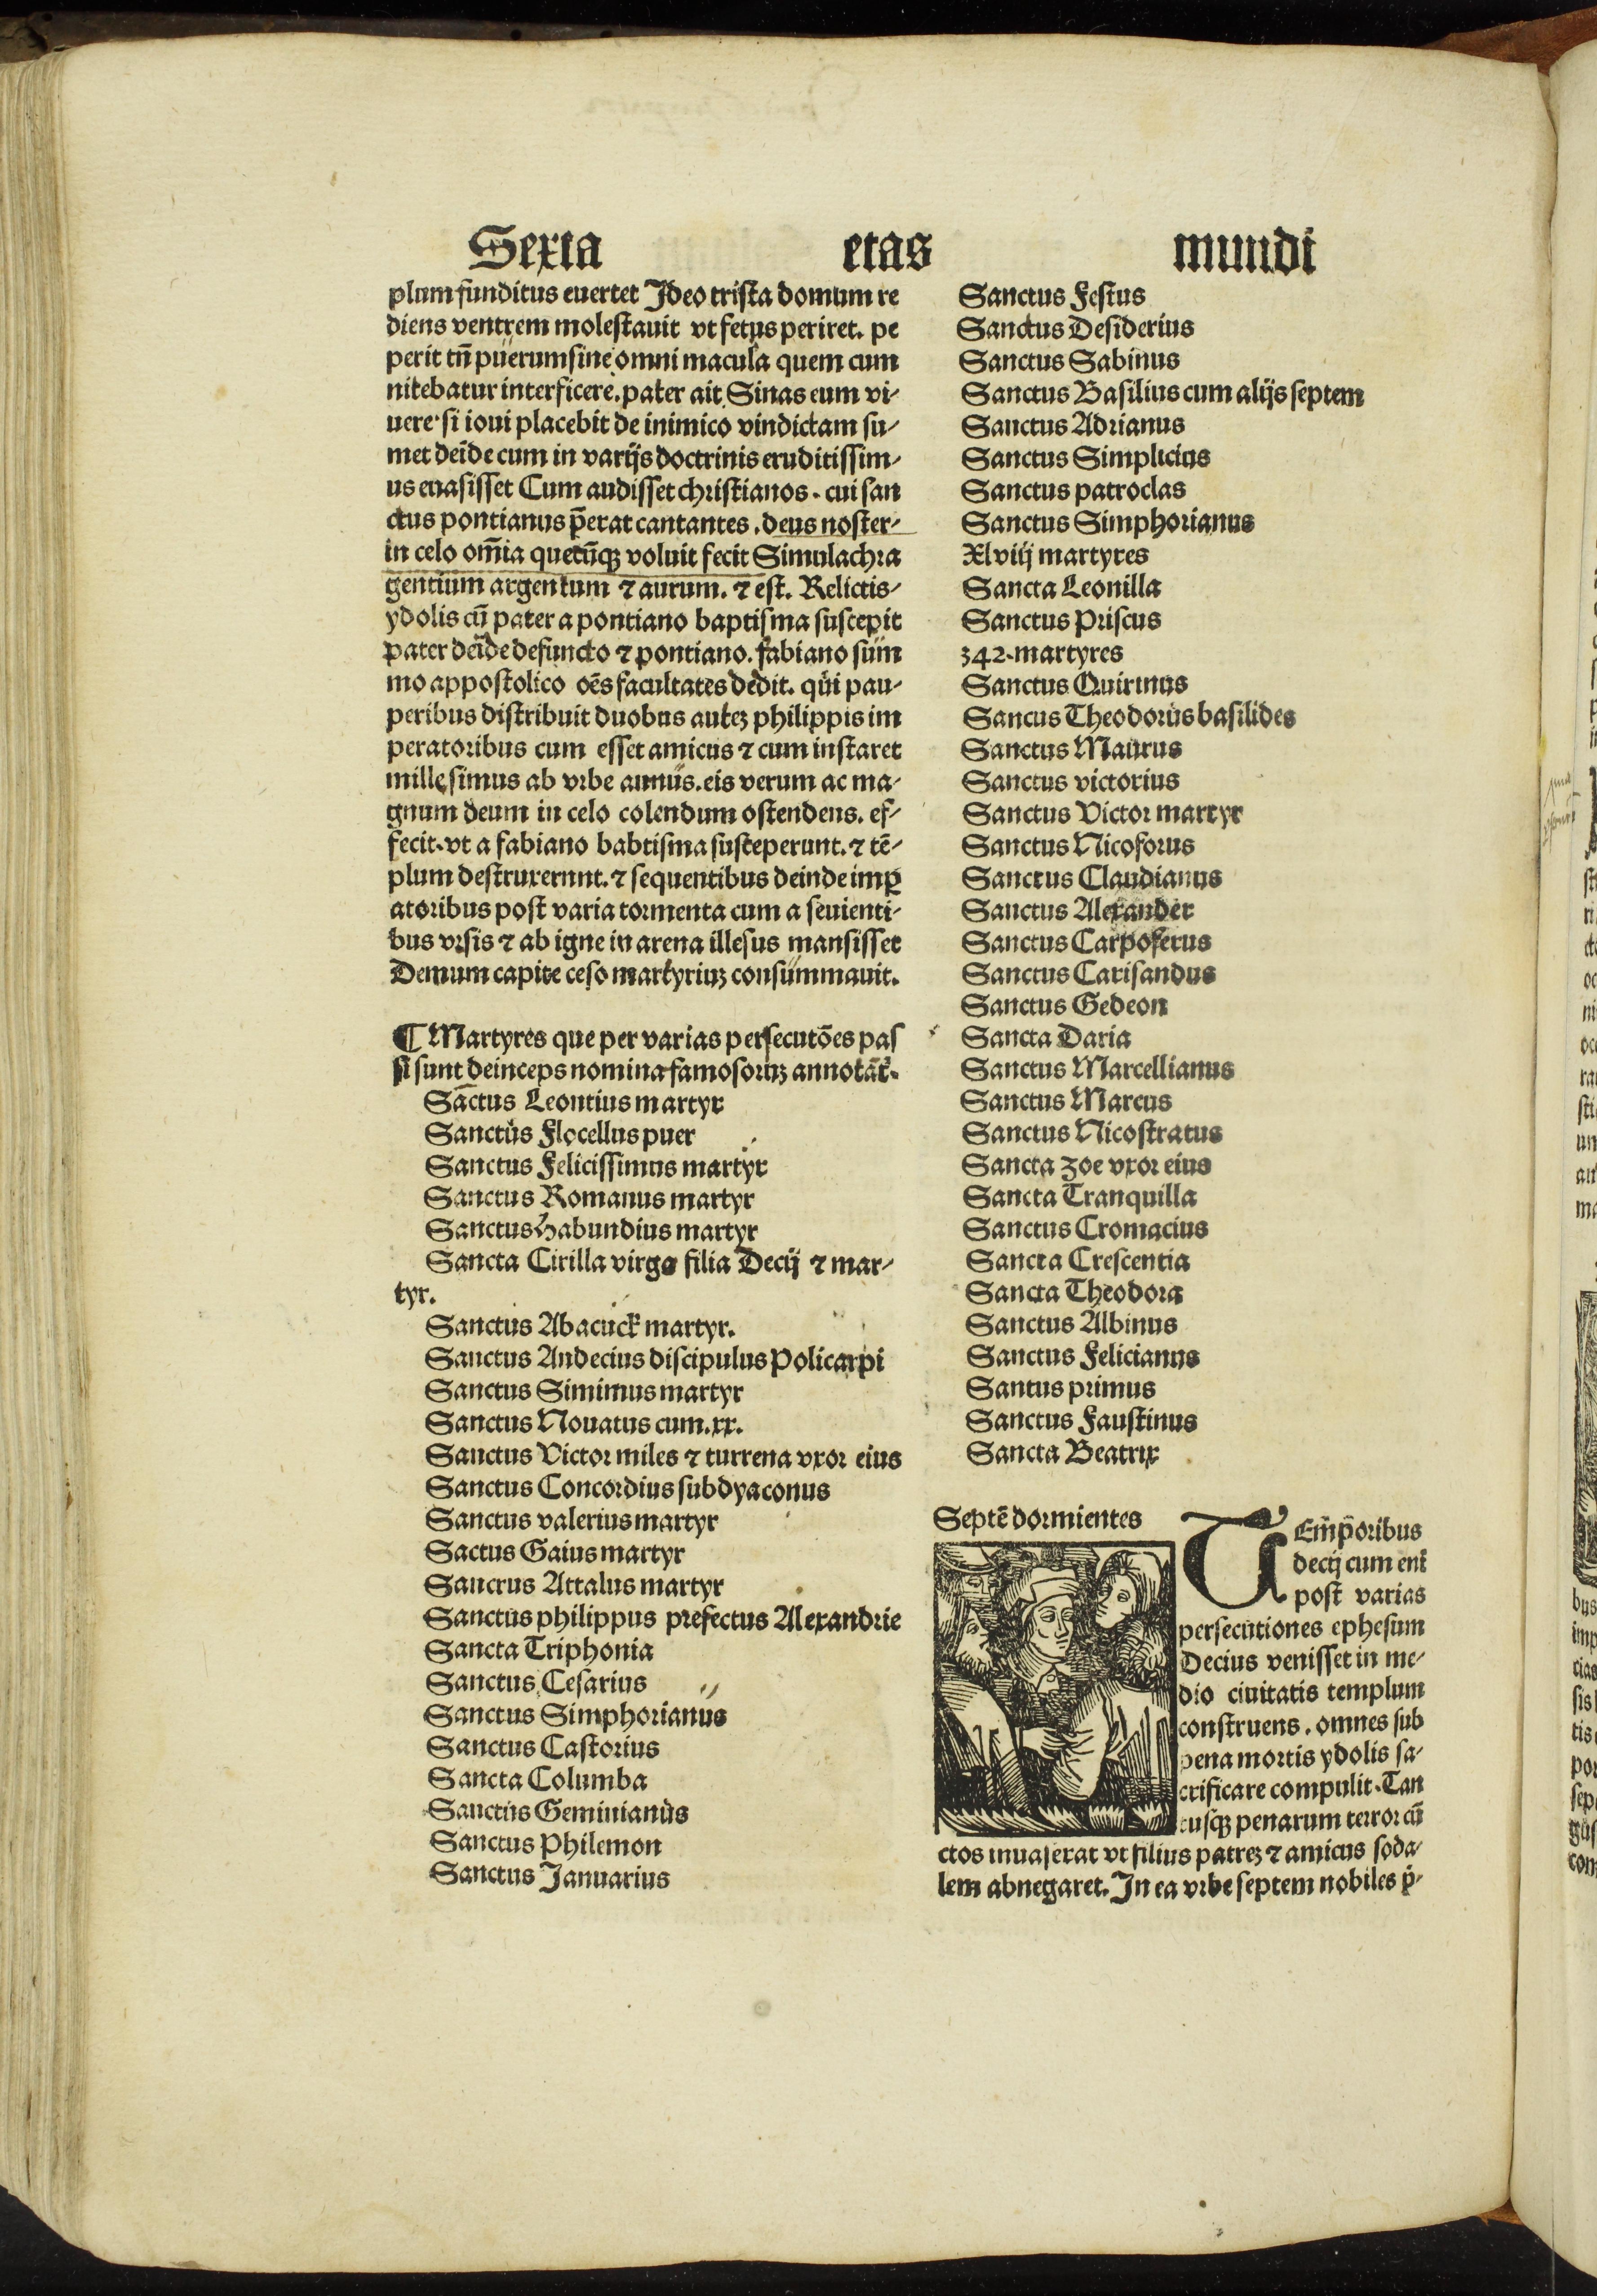 Sexta etas mundi
plum funditus euertet Ideo trista domum re
diens ventrem molestauit vt fetus periret. pe
perit tn̄ puerum sine omni macula quem cum
nitebatur interficere. pater ait Sinas eum vi-
uere si ioui placebit de inimico vindictam su-
met deīde cum in varijs doctrinis eruditissim-
us euasisset Cum audisset christianos. cui san
ctus pontianus p̄erat cantantes. deus noster-
in celo om̄ia quecūqꝫ voluit fecit Simulachra
gentium argentum ⁊ aurum. ⁊ est. Relictis-
ydolis cū pater a pontiano baptisma suscepit
pater deīde defuncto ⁊ pontiano. fabiano sum
mo appostolico oēs facultates dedit. qui pau-
peribus distribuit duobus auteꝫ philippis im
peratoribus cum esset amicus ⁊ cum instaret
millesimus ab vrbe annus. eis verum ac ma-
gnum deum in celo colendum ostendens. ef-
fecit. vt a fabiano babtisma susceperunt. ⁊ tē-
plum destruxerunt. ⁊ sequentibus deinde imꝑ
atoribus post varia tormenta cum a seuienti-
bus vrsis ⁊ ab igne in arena illesus mansisset
Demum capite ceso martyriuꝫ consummauit.
¶ Martyres que per varias persecutōes pas
si sunt deinceps nomina famosoruꝫ annotāt̄.
Sāctus Leontius martyr
Sanctus Flocellus puer
Sanctus Felicissimus martyr
Sanctus Romanus martyr
Sanctus Habundius martyr
Sancta Cirilla virgo filia Decij ⁊ mar-
tyr.
Sanctus Abacuck martyr.
Sanctus Andecius discipulus Policarpi
Sanctus Simimus martyr
Sanctus Nouatus cum .xx.
Sanctus Victor miles ⁊ turrena vxor eius
Sanctus Concordius subdyaconus
Sanctus valerius martyr
Sactus Gaius martyr
Sancrus Attalus martyr
Sanctus philippus prefectus Alexandrie
Sancta Triphonia
Sanctus Cesarius
Sanctus Simphorianus
Sanctus Castorius
Sancta Columba
Sanctus Geminianus
Sanctus Philemon
Sanctus Januarius
Sanctus Festus
Sanctus Desiderius
Sanctus Sabinus
Sanctus Basilius cum alijs septem
Sanctus Adrianus
Sanctus Simplicius
Sanctus patroclas
Sanctus Simphorianus
Xlviij martyres
Sancta Leonilla
Sanctus Priscus
342. martyres
Sanctus Quirinus
Sancus Theodorus basilides
Sanctus Maurus
Sanctus victorius
Sanctus Victor martyr
Sanctus Nicoforus
Sanctus Claudianus
Sanctus Alexander
Sanctus Carpoferus
Sanctus Carisandus
Sanctus Gedeon
Sancta Daria
Sanctus Marcellianus
Sanctus Marcus
Sanctus Nicostratus
Sancta zoe vxor eius
Sancta Tranquilla
Sanctus Cromacius
Sancta Crescentia
Sancta Theodora
Sanctus Albinus
Sanctus Felicianus
Santus primus
Sanctus Faustinus
Sancta Beatrix
Septē dormientes
TEm̄p̄oribus
decij cum eni
post varias
persecutiones ephesum
Decius venisset in me-
dio ciuitatis templum
construens. omnes sub
pena mortis ydolis sa-
crificare compulit. Tan
tusqꝫ penarum terror cū
ctos inuaserat vt filius patreꝫ ⁊ amicus soda-
lem abnegaret. In ea vrbe septem nobiles p̄-